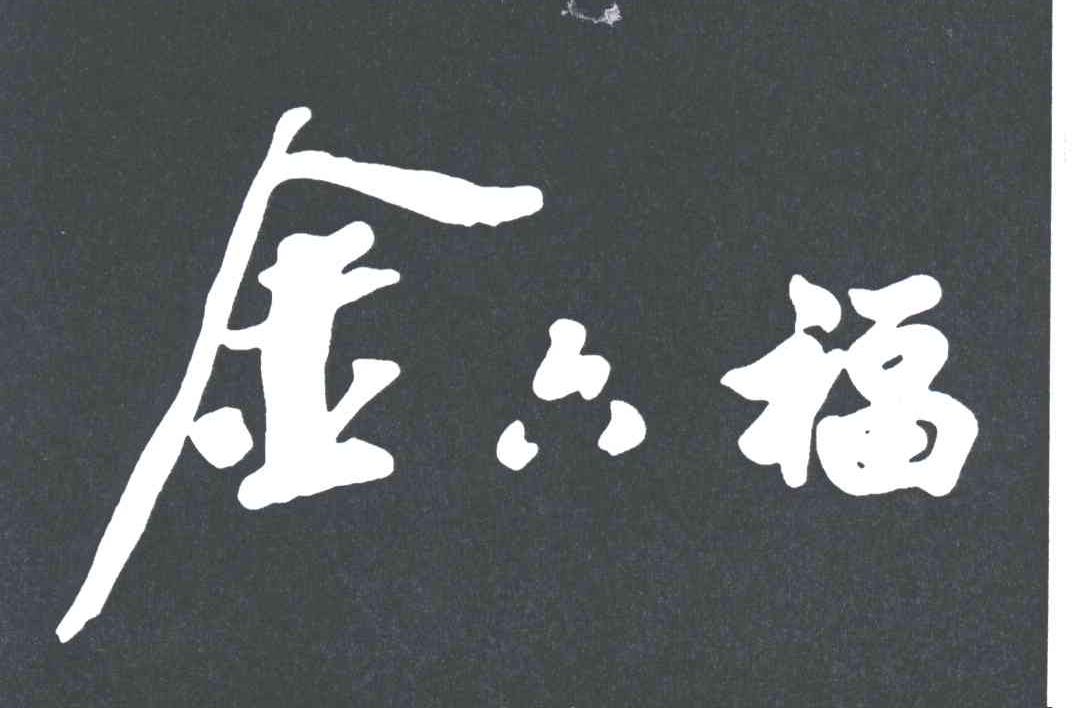 金六福